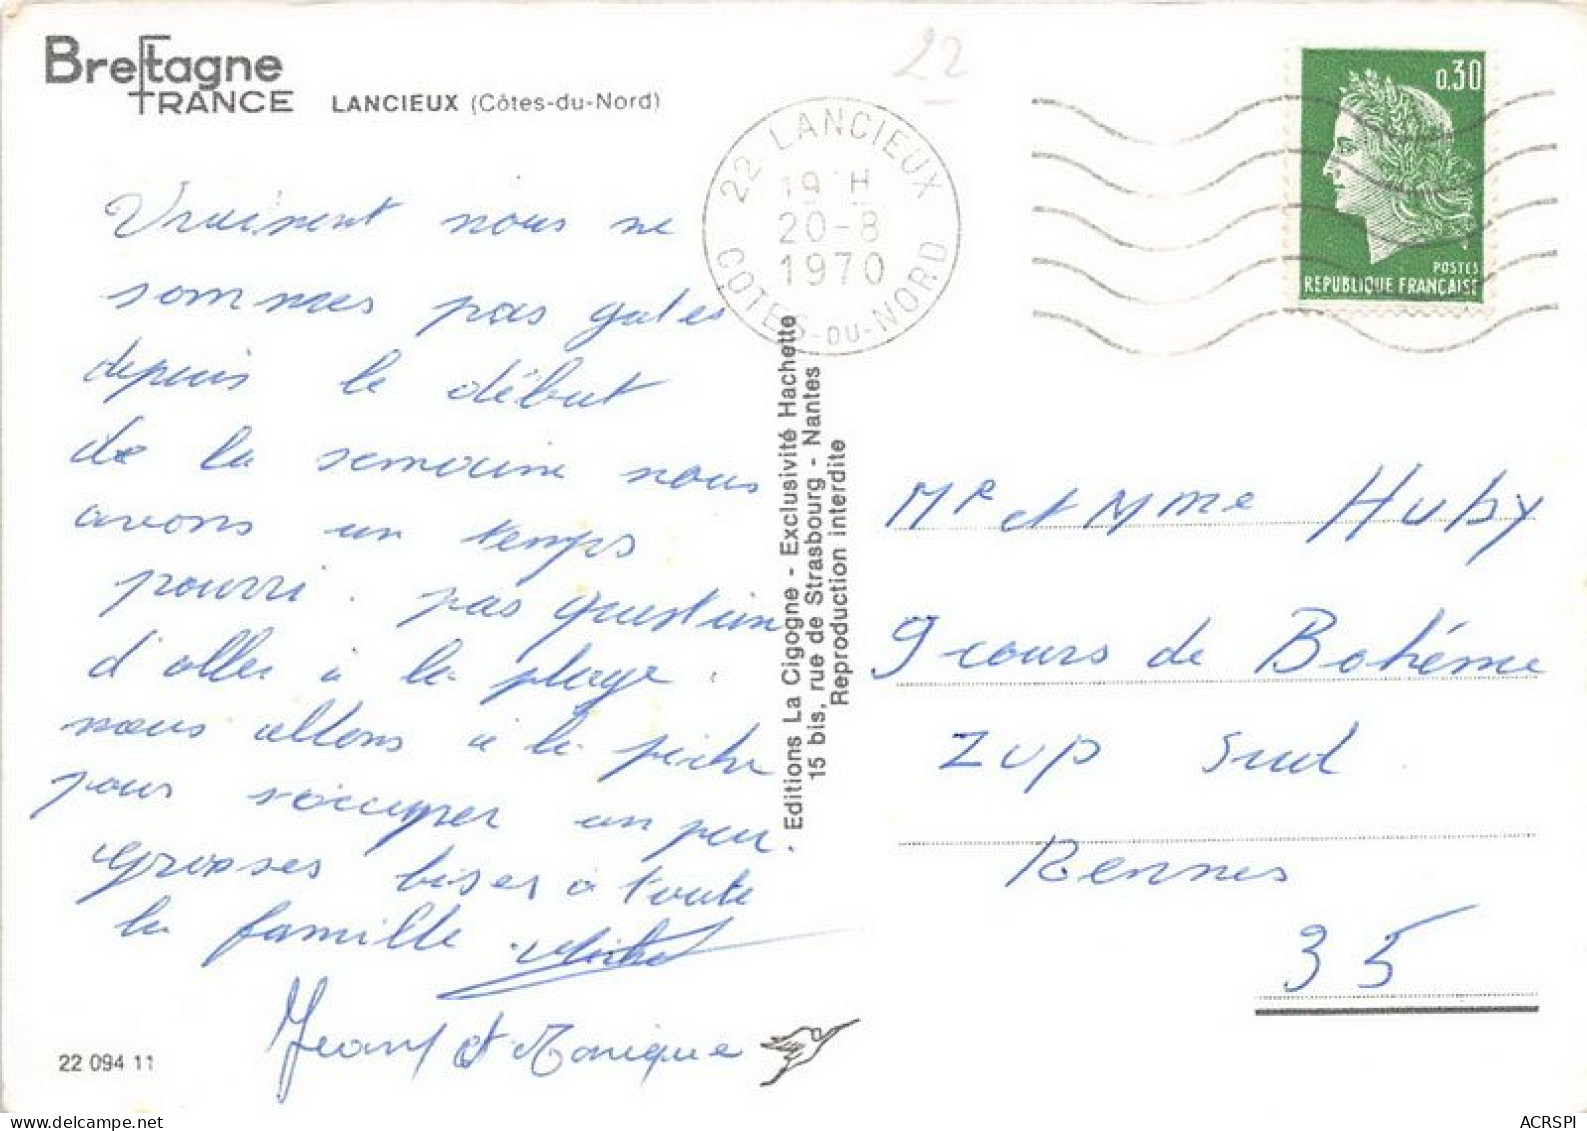 Bretagne
FRANCE
LANCIEUX (Côtes-du-Nord)
22
22 LANCIEUX
19 H
20-8
1970
COTES-DU-NORD
0,30
POSTES
REPUBLIQUE FRANÇAISE
Vraiment nous ne
sommes pas gates
depuis le début
de la semaine nous
avons un temps
pourri. pas question
d'aller à la plage.
nous allons à la pêche
pour s'occuper un peu.
Grosses bises à toute
la famille.
et Monique
22 094 11
Editions La Cigogne - Exclusivité Hachette
15 bis, rue de Strasbourg - Nantes
Reproduction interdite
Mr et Mme Huby
9 cours de Bohéme
ZUP Sud
Rennes
35
ACRSPI